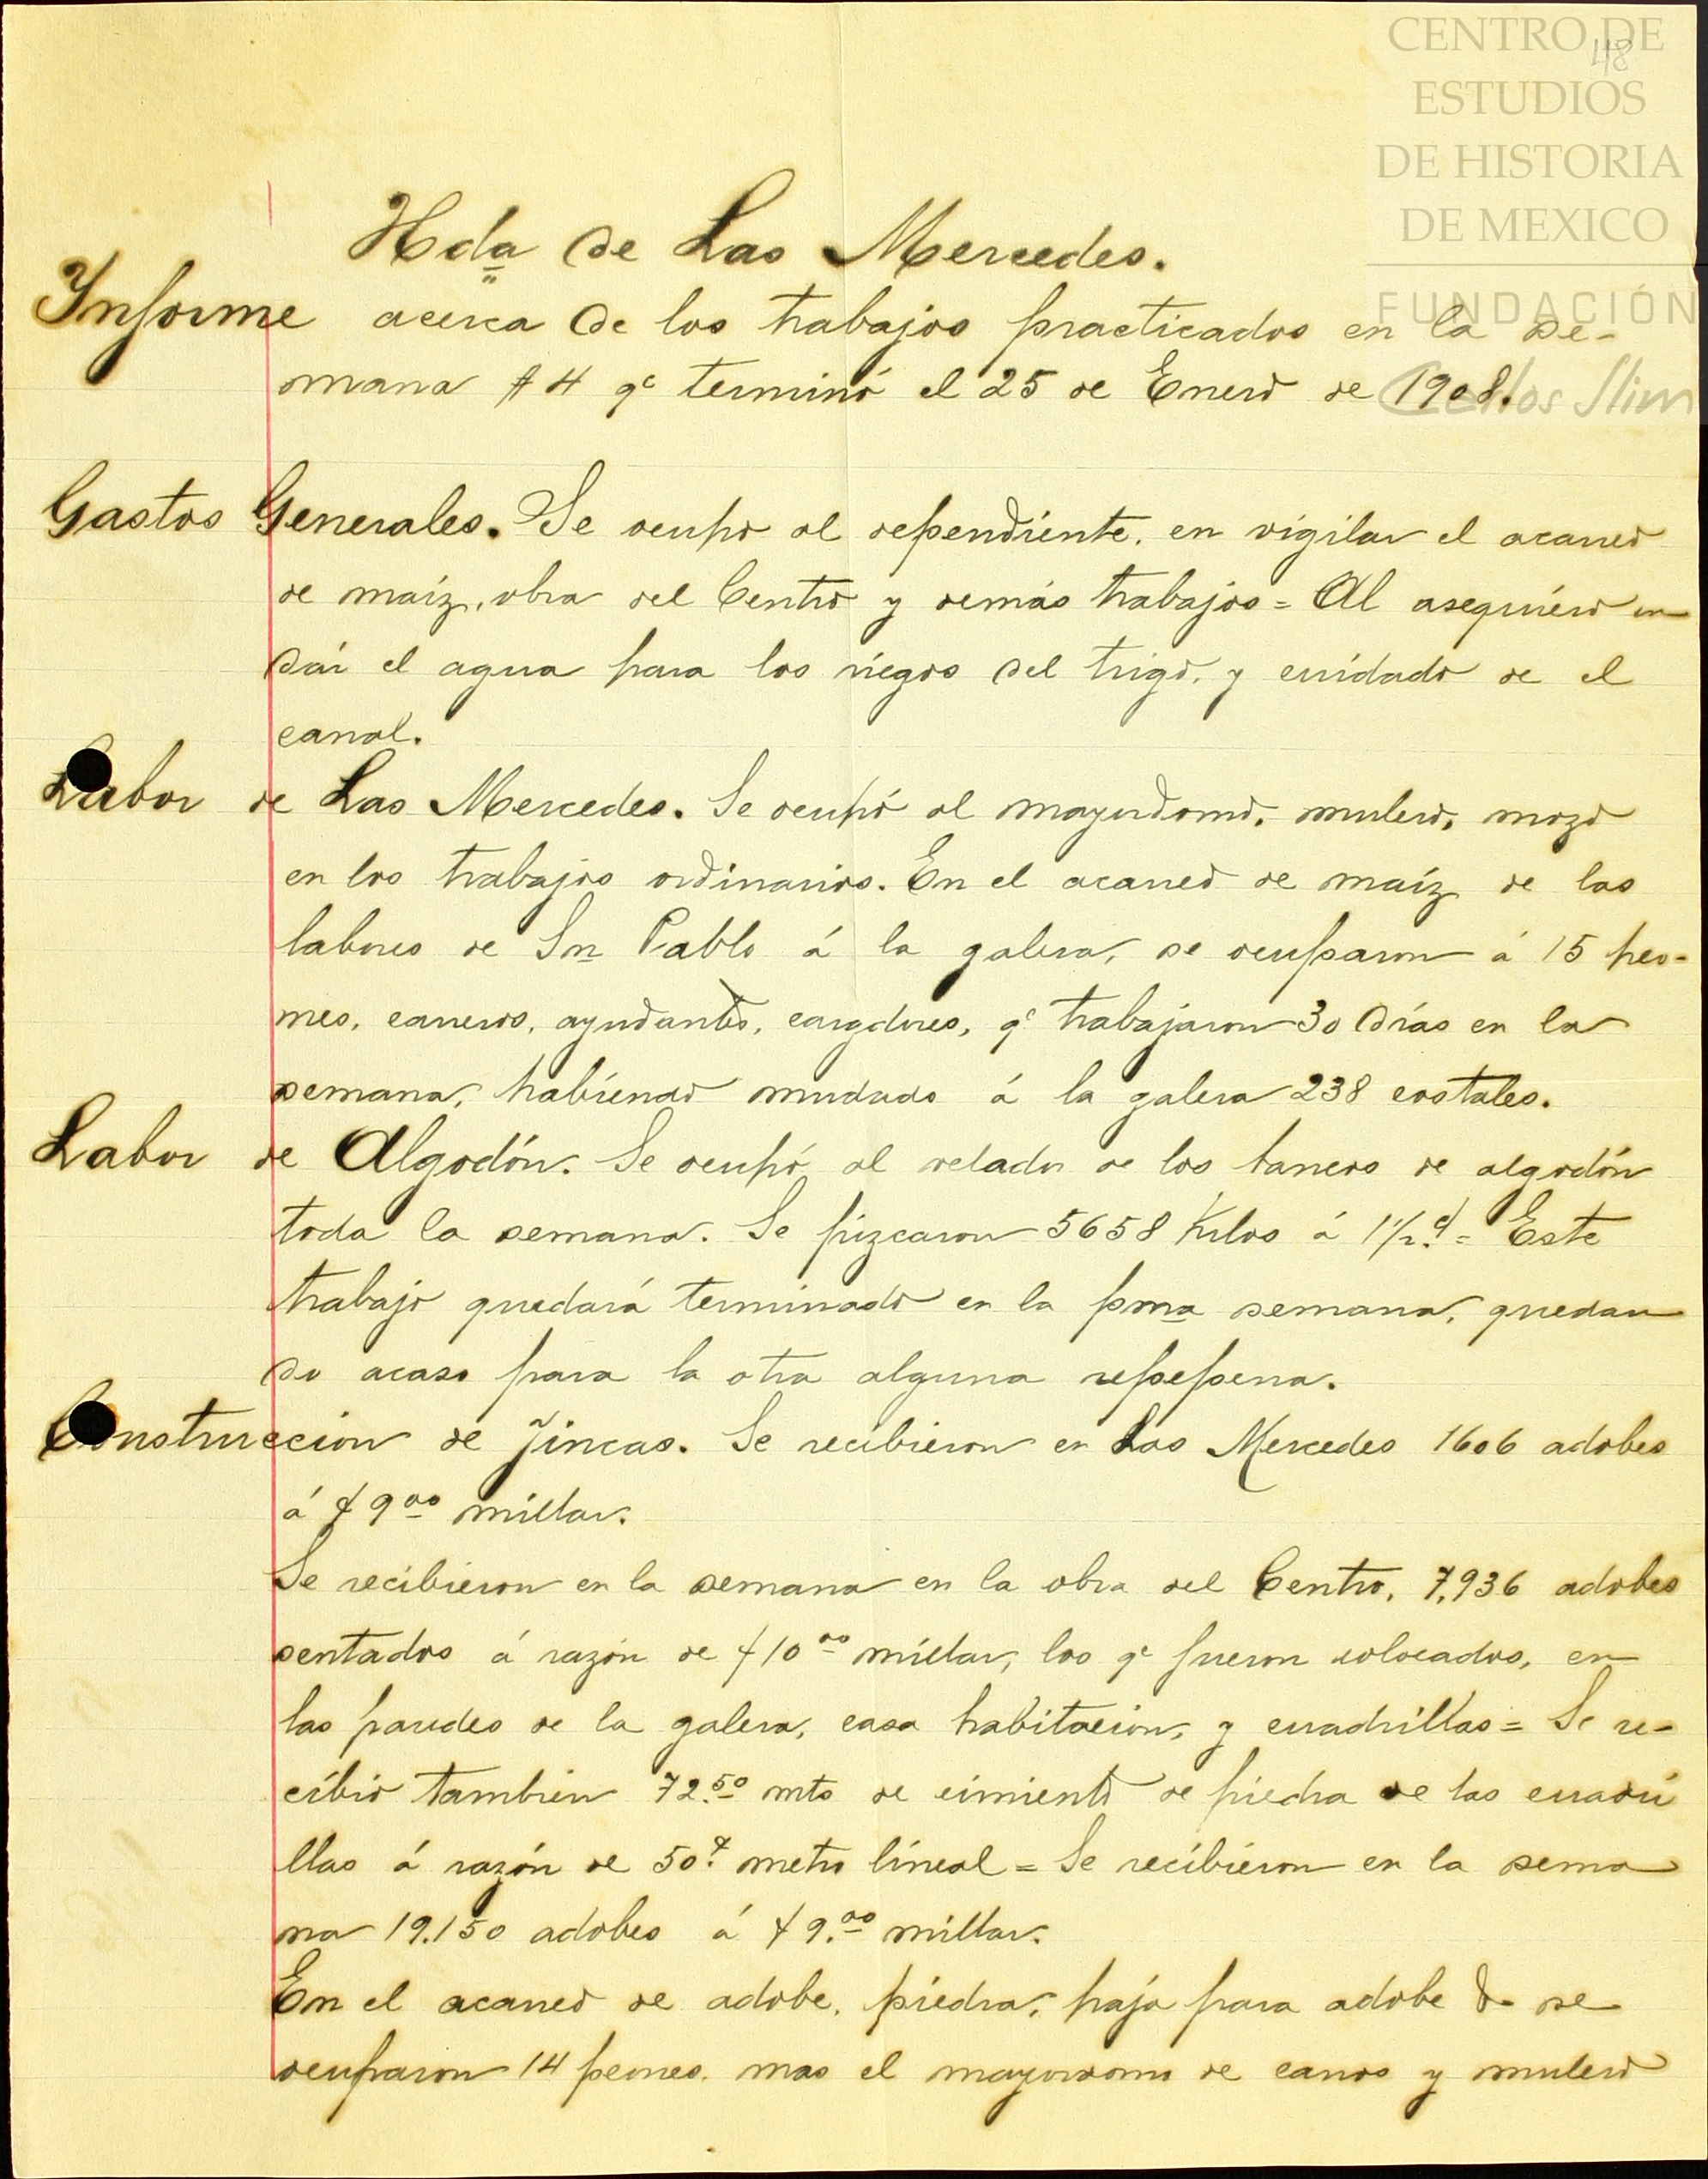 CENTRO DE
ESTUDIOS
DE HISTORIA
DE MEXICO
FUNDACIÓN
Carlos Slim
48
Hda de Las Mercedes.
Informe acerca de los trabajos practicados en la se-
mana # 4 qe terminó el 25 de Enero de 1908.
Gastos Generales. Se ocupo al dependiente, en vigilar el acarreo
de maíz, obra del Centro y demás trabajos = Al asequiero en
dar el agua para los riegos del trigo, y cuidado de el
canal.
Labor de Las Mercedes. Se ocupó al mayordomo, mulero, mozo
en los trabajos ordinarios. En el acarreo de maíz de las
labores de Sn Pablo á la galera, se ocuparon á 15 peo-
nes, carreros, ayudantes, cargdores, qe trabajaron 30 días en la
semana, habiendo mudado á la galera 238 costales.
Labor de Algodón. Se ocupó al velador de los tancos de algodón
toda la semana. Se pizcaron 5658 Kilos á 1 1/2 ¢ = Este
trabajo quedará terminado en la pma semana, quedan
do acaso para la otra alguna repepena.
Construccion de fincas. Se recibieron en Las Mercedes 1606 adobes
á $ 9.00 millar.
Se recibieron en la semana en la obra del Centro, 7,936 adobes
sentados á razón de $ 10.00 millar, los qe fueron colocados, en
las paredes de la galera, casa habitacion, y cuadrillas = Se re-
cibió tambien 72.50 mts de cimiento de piedra de las cuadri
llas á razón de 50.¢ metro lineal = Se recibieron en la sema
na 19.150 adobes á $ 9.00 millar.
En el acarreo de adobe, piedra, paja para adobe & se
ocuparon 14 peones, mas el mayordomo de carros y mulero